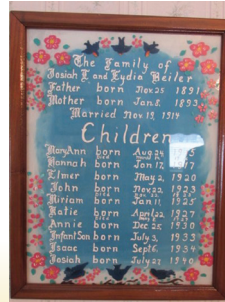 The Family of
Josiah L and Lydia Beiler
Father born Nov. 25 1891
Mother born Jan. 8. 1893
Married Nov. 19, 1914
Children
MaryAnn born Aug. 24
Hannah born Jan. 17,
Elmer born May 2, 1920
John born Nov. 22, 1923
Miriam born Jan. 11, 1925
Katie born April 22 1927
Annie born Dec. 25 1930
Infant Son born July 3, 1933
Isaac born Sept. 1934
Josiah born July 27 1940